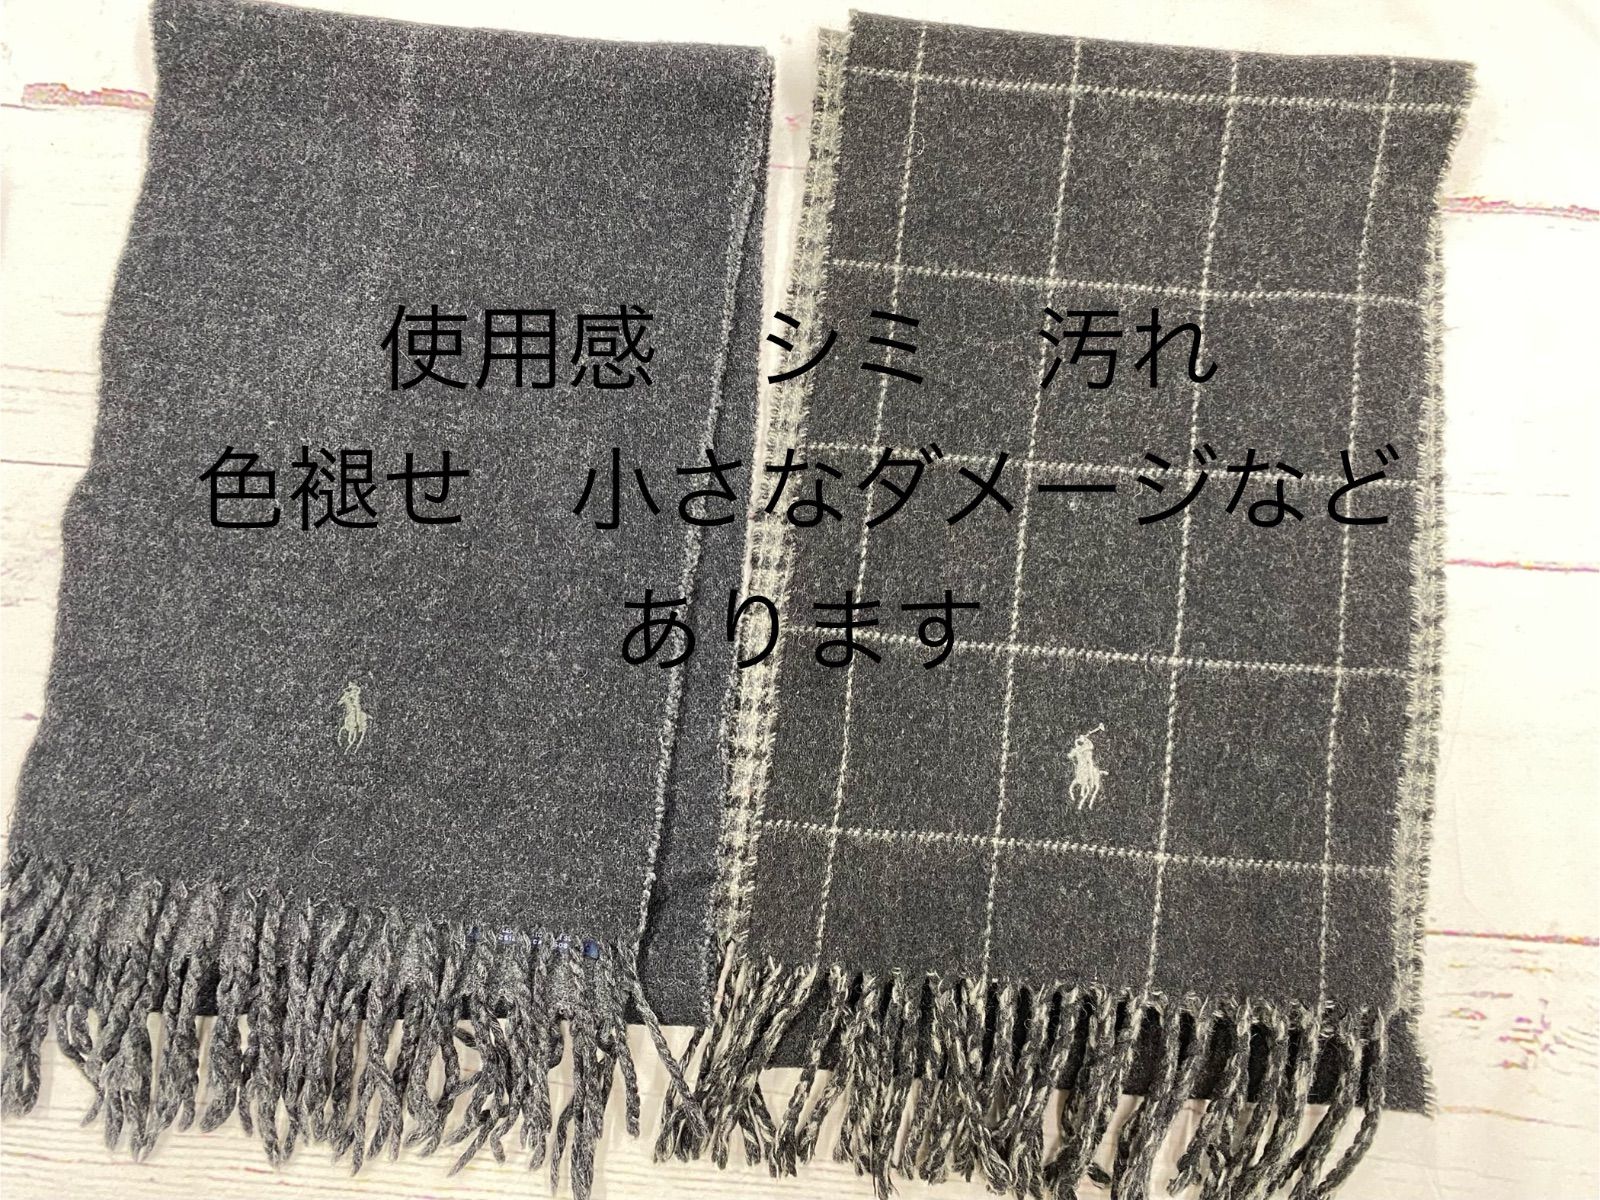 使用感　シミ　汚れ
色褪せ　小さなダメージなど
あります